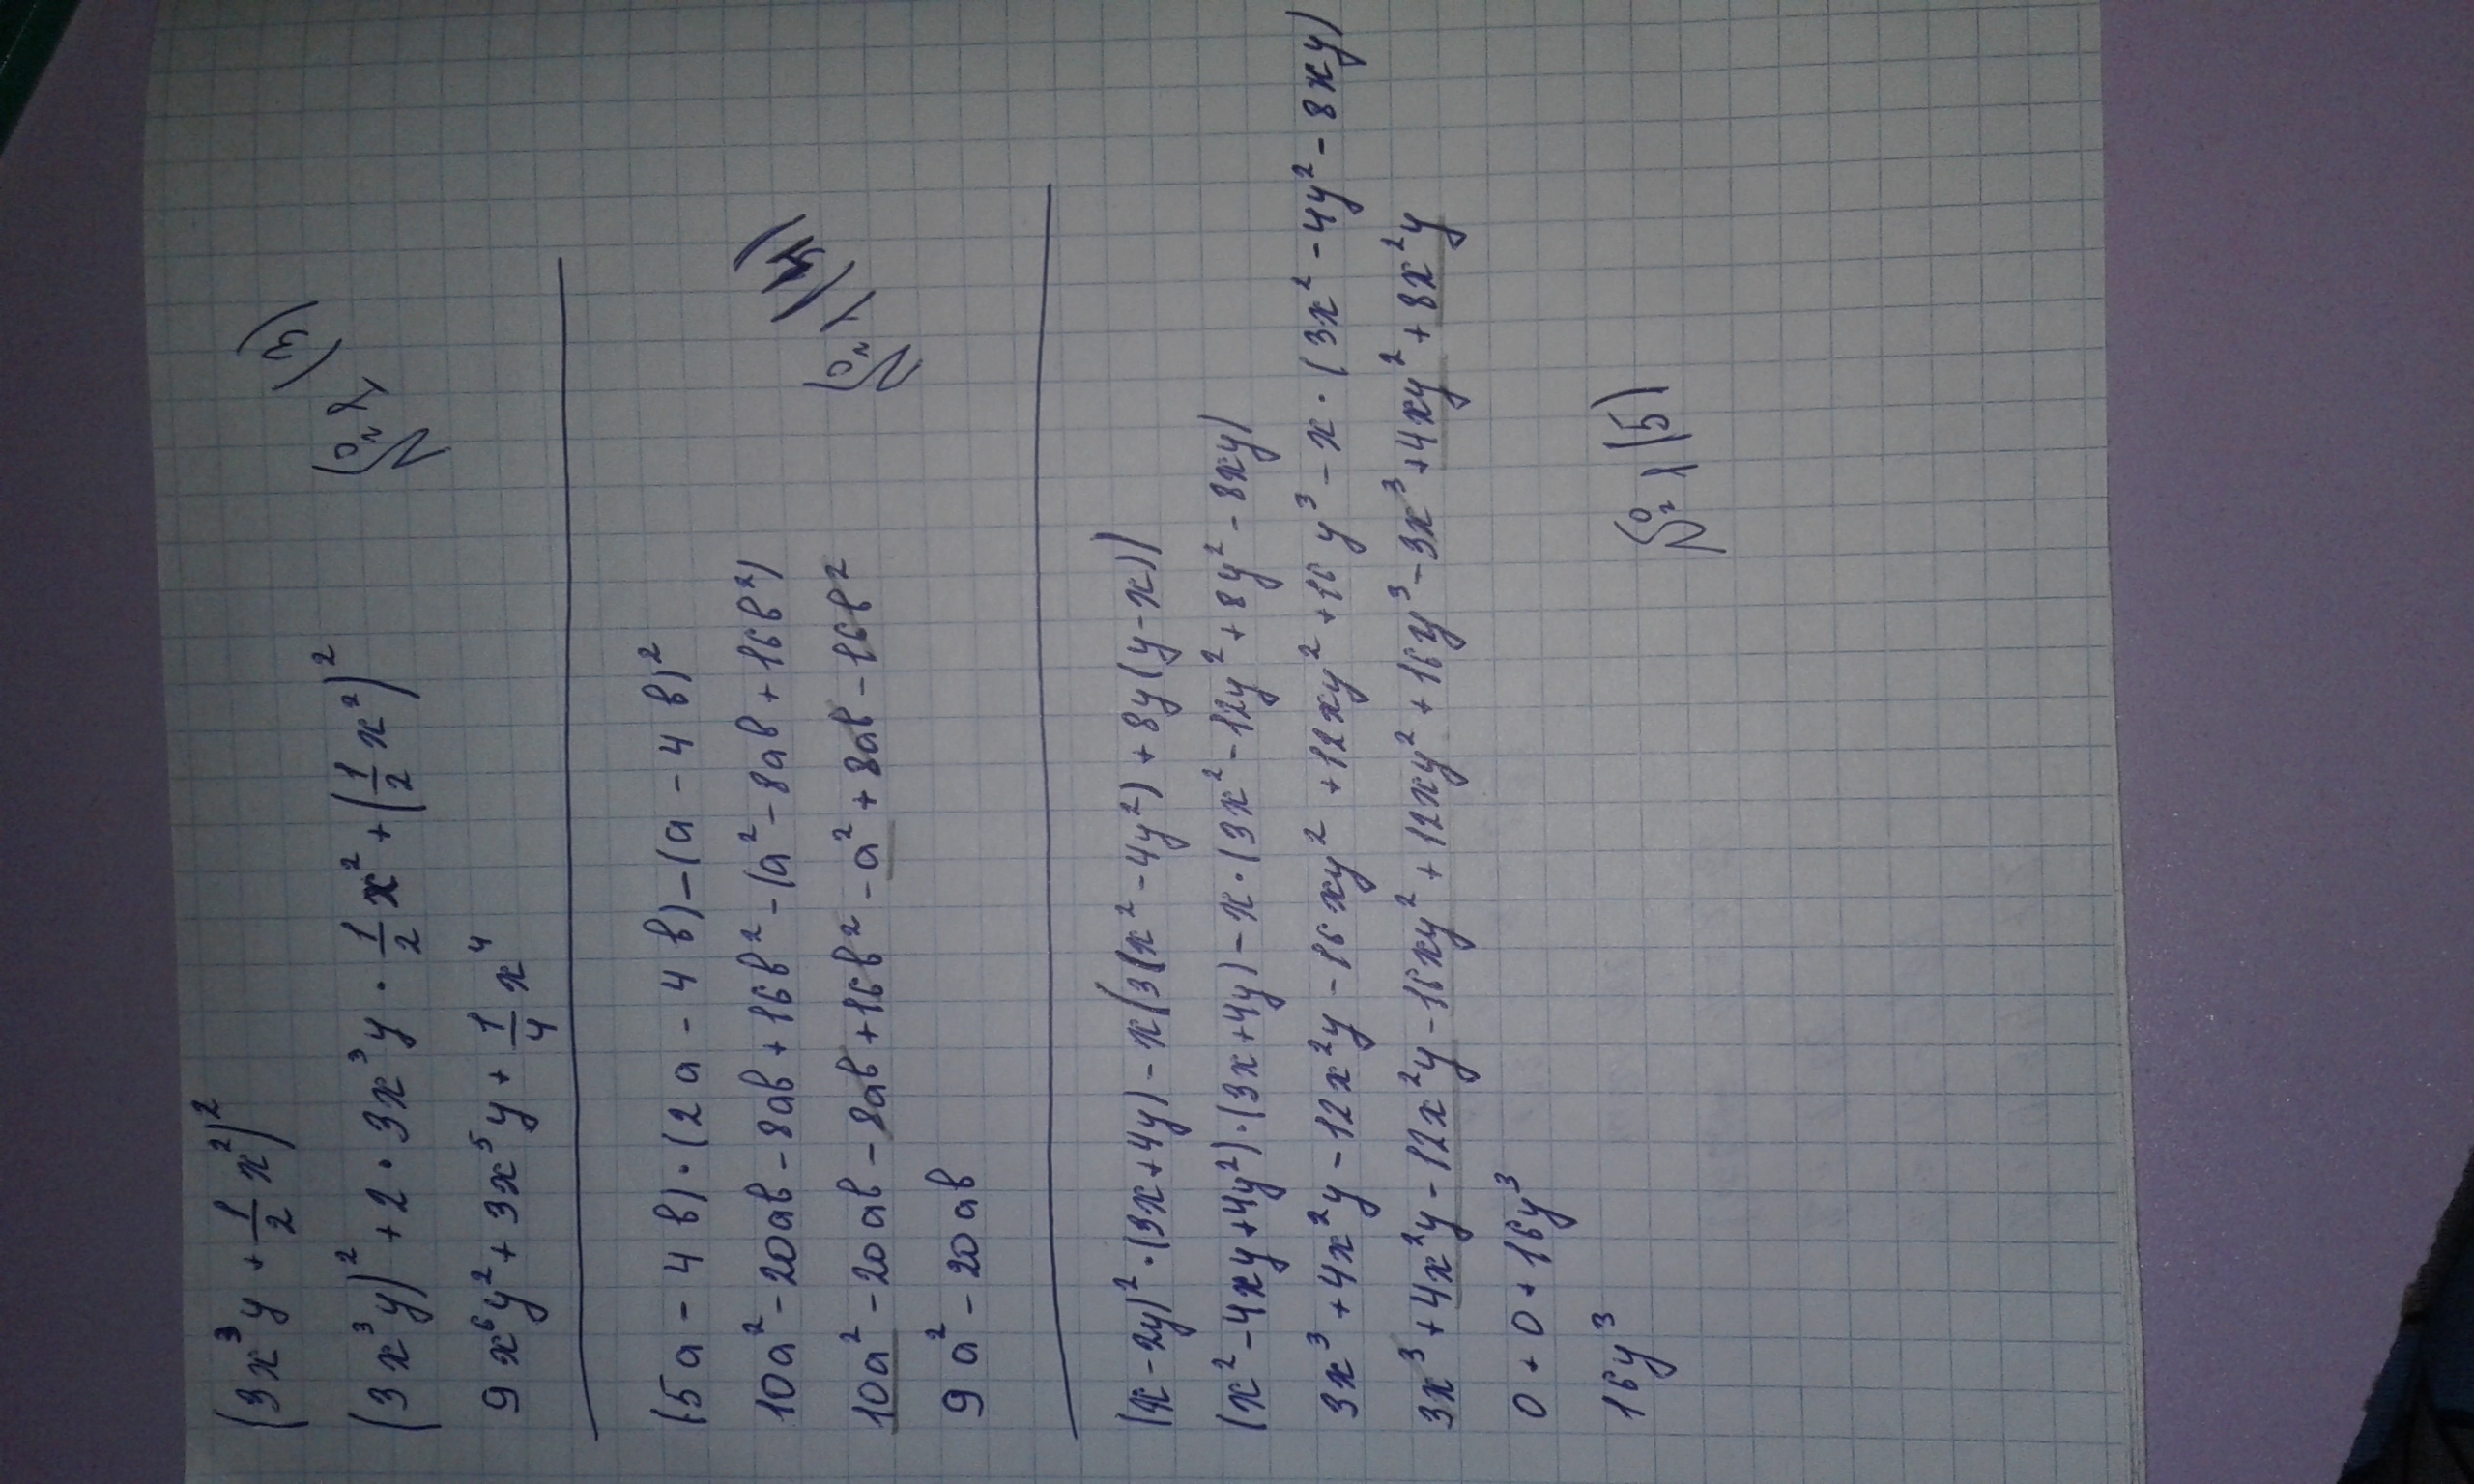 (3x³y + 1/2 x²)²
(3x³y)² + 2 · 3x³y · 1/2 x² + (1/2 x²)²
9x⁶y² + 3x⁵y + 1/4 x⁴
(3)
(5a - 4b) · (2a - 4b) - (a - 4b)²
10a² - 20ab - 8ab + 16b² - (a² - 8ab + 16b²)
10a² - 20ab - 8ab + 16b² - a² + 8ab - 16b²
9a² - 20ab
№1 (4)
(x - 2y)² · (3x + 4y) - x(3(x² - 4y²) + 8y(y - x))
(x² - 4xy + 4y²) · (3x + 4y) - x · (3x² - 12y² + 8y² - 8xy)
3x³ + 4x²y - 12x²y - 16xy² + 12xy² + 16y³ - x · (3x² - 4y² - 8xy)
3x³ + 4x²y - 12x²y - 16xy² + 12xy² + 16y³ - 3x³ + 4xy² + 8x²y
0 + 0 + 16y³
16y³
№1 (5)